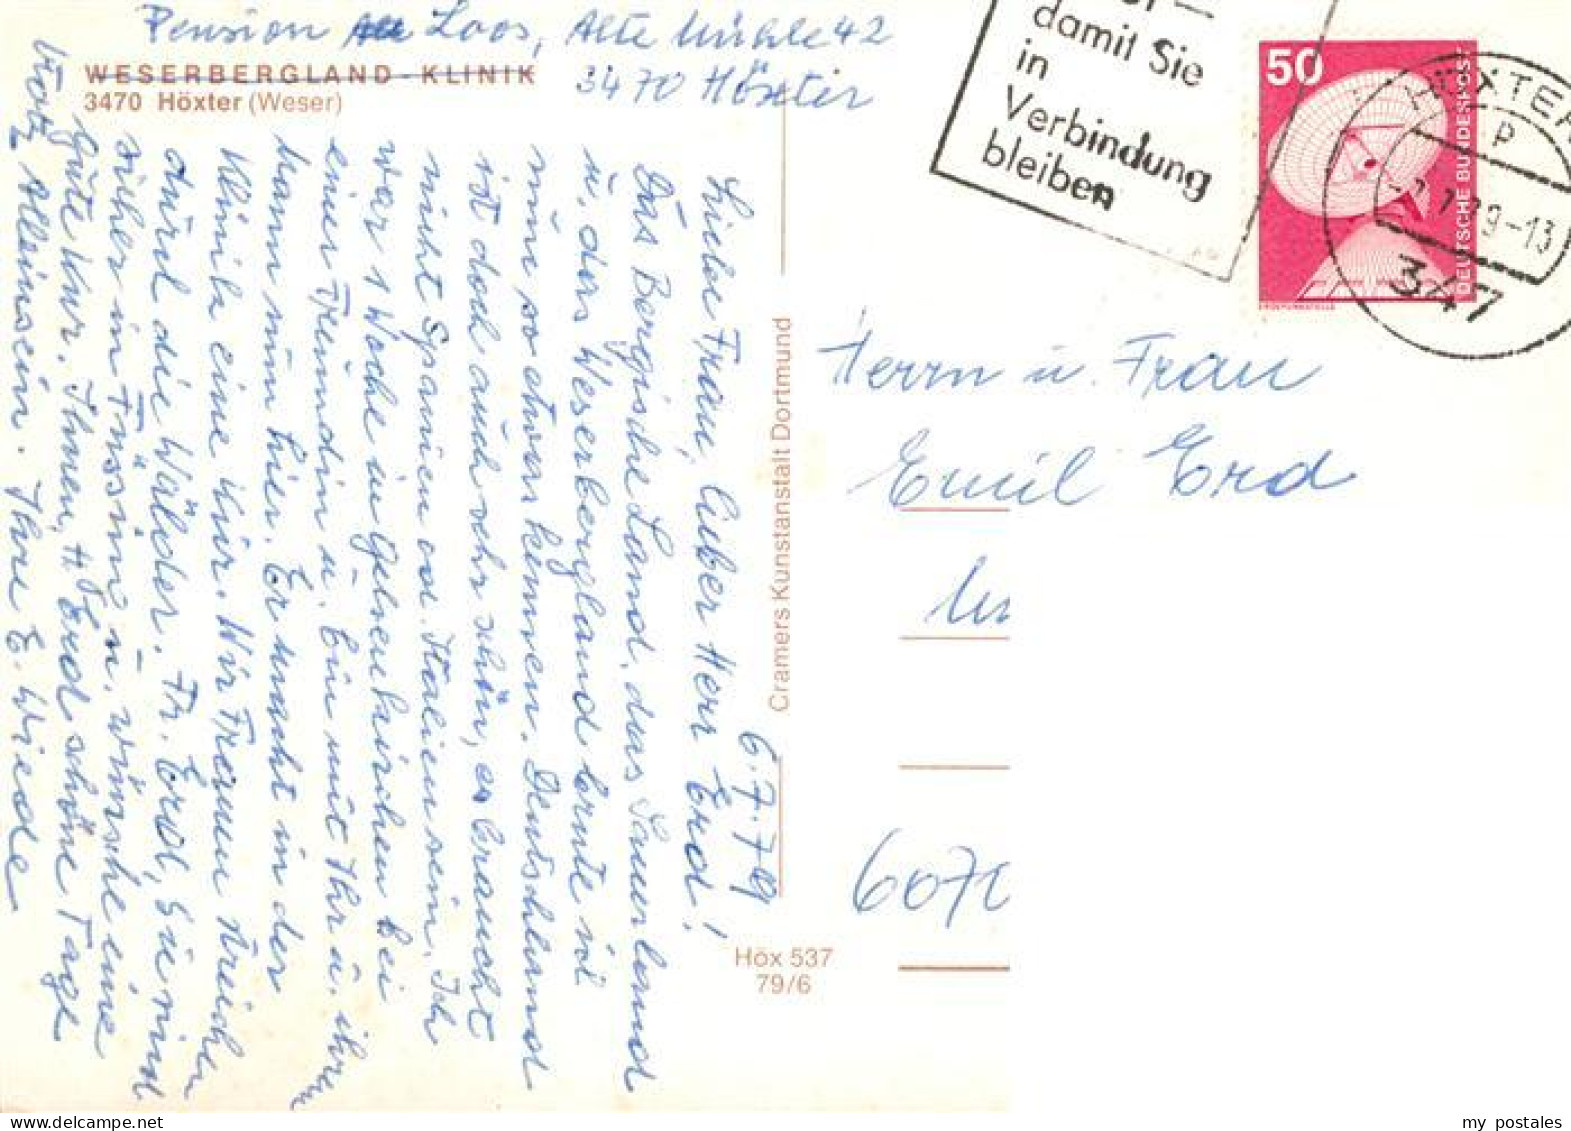 Pension Loos, Alte Mühle 42
3470 Höxter
WESERBERGLAND-KLINIK
3470 Höxter (Weser)
6.7.79
Liebe Frau, lieber Herr Erd!
Das Bergische Land, das Sauerland
u. das Weserbergland lernte ich
nun so etwas kennen. Deutschland
ist doch auch sehr schön, es braucht
nicht Spanien od. Italien sein. Ich
war 1 Woche in Gelsenkirchen bei
einer Freundin u. bin mit Ihr u. ihrem
Mann nun hier. Er macht in der
Klinik eine Kur. Wir Frauen streichen
durch die Wälder. Fr. Erd, Sie sind
sicher in Füssing u. wünsche eine
gute Kur. Ihnen, H. Erd schöne Tage
trotz Alleinsein. Ihre E. Wiede
Cramers Kunstanstalt Dortmund
Höx 537
79/6
damit Sie
in
Verbindung
bleiben
50
DEUTSCHE BUNDESPOST
ERDFUNKSTELLE
HÖXTER
p
7.79-13
347
Herrn u. Frau
Emil Erd
607
my postales